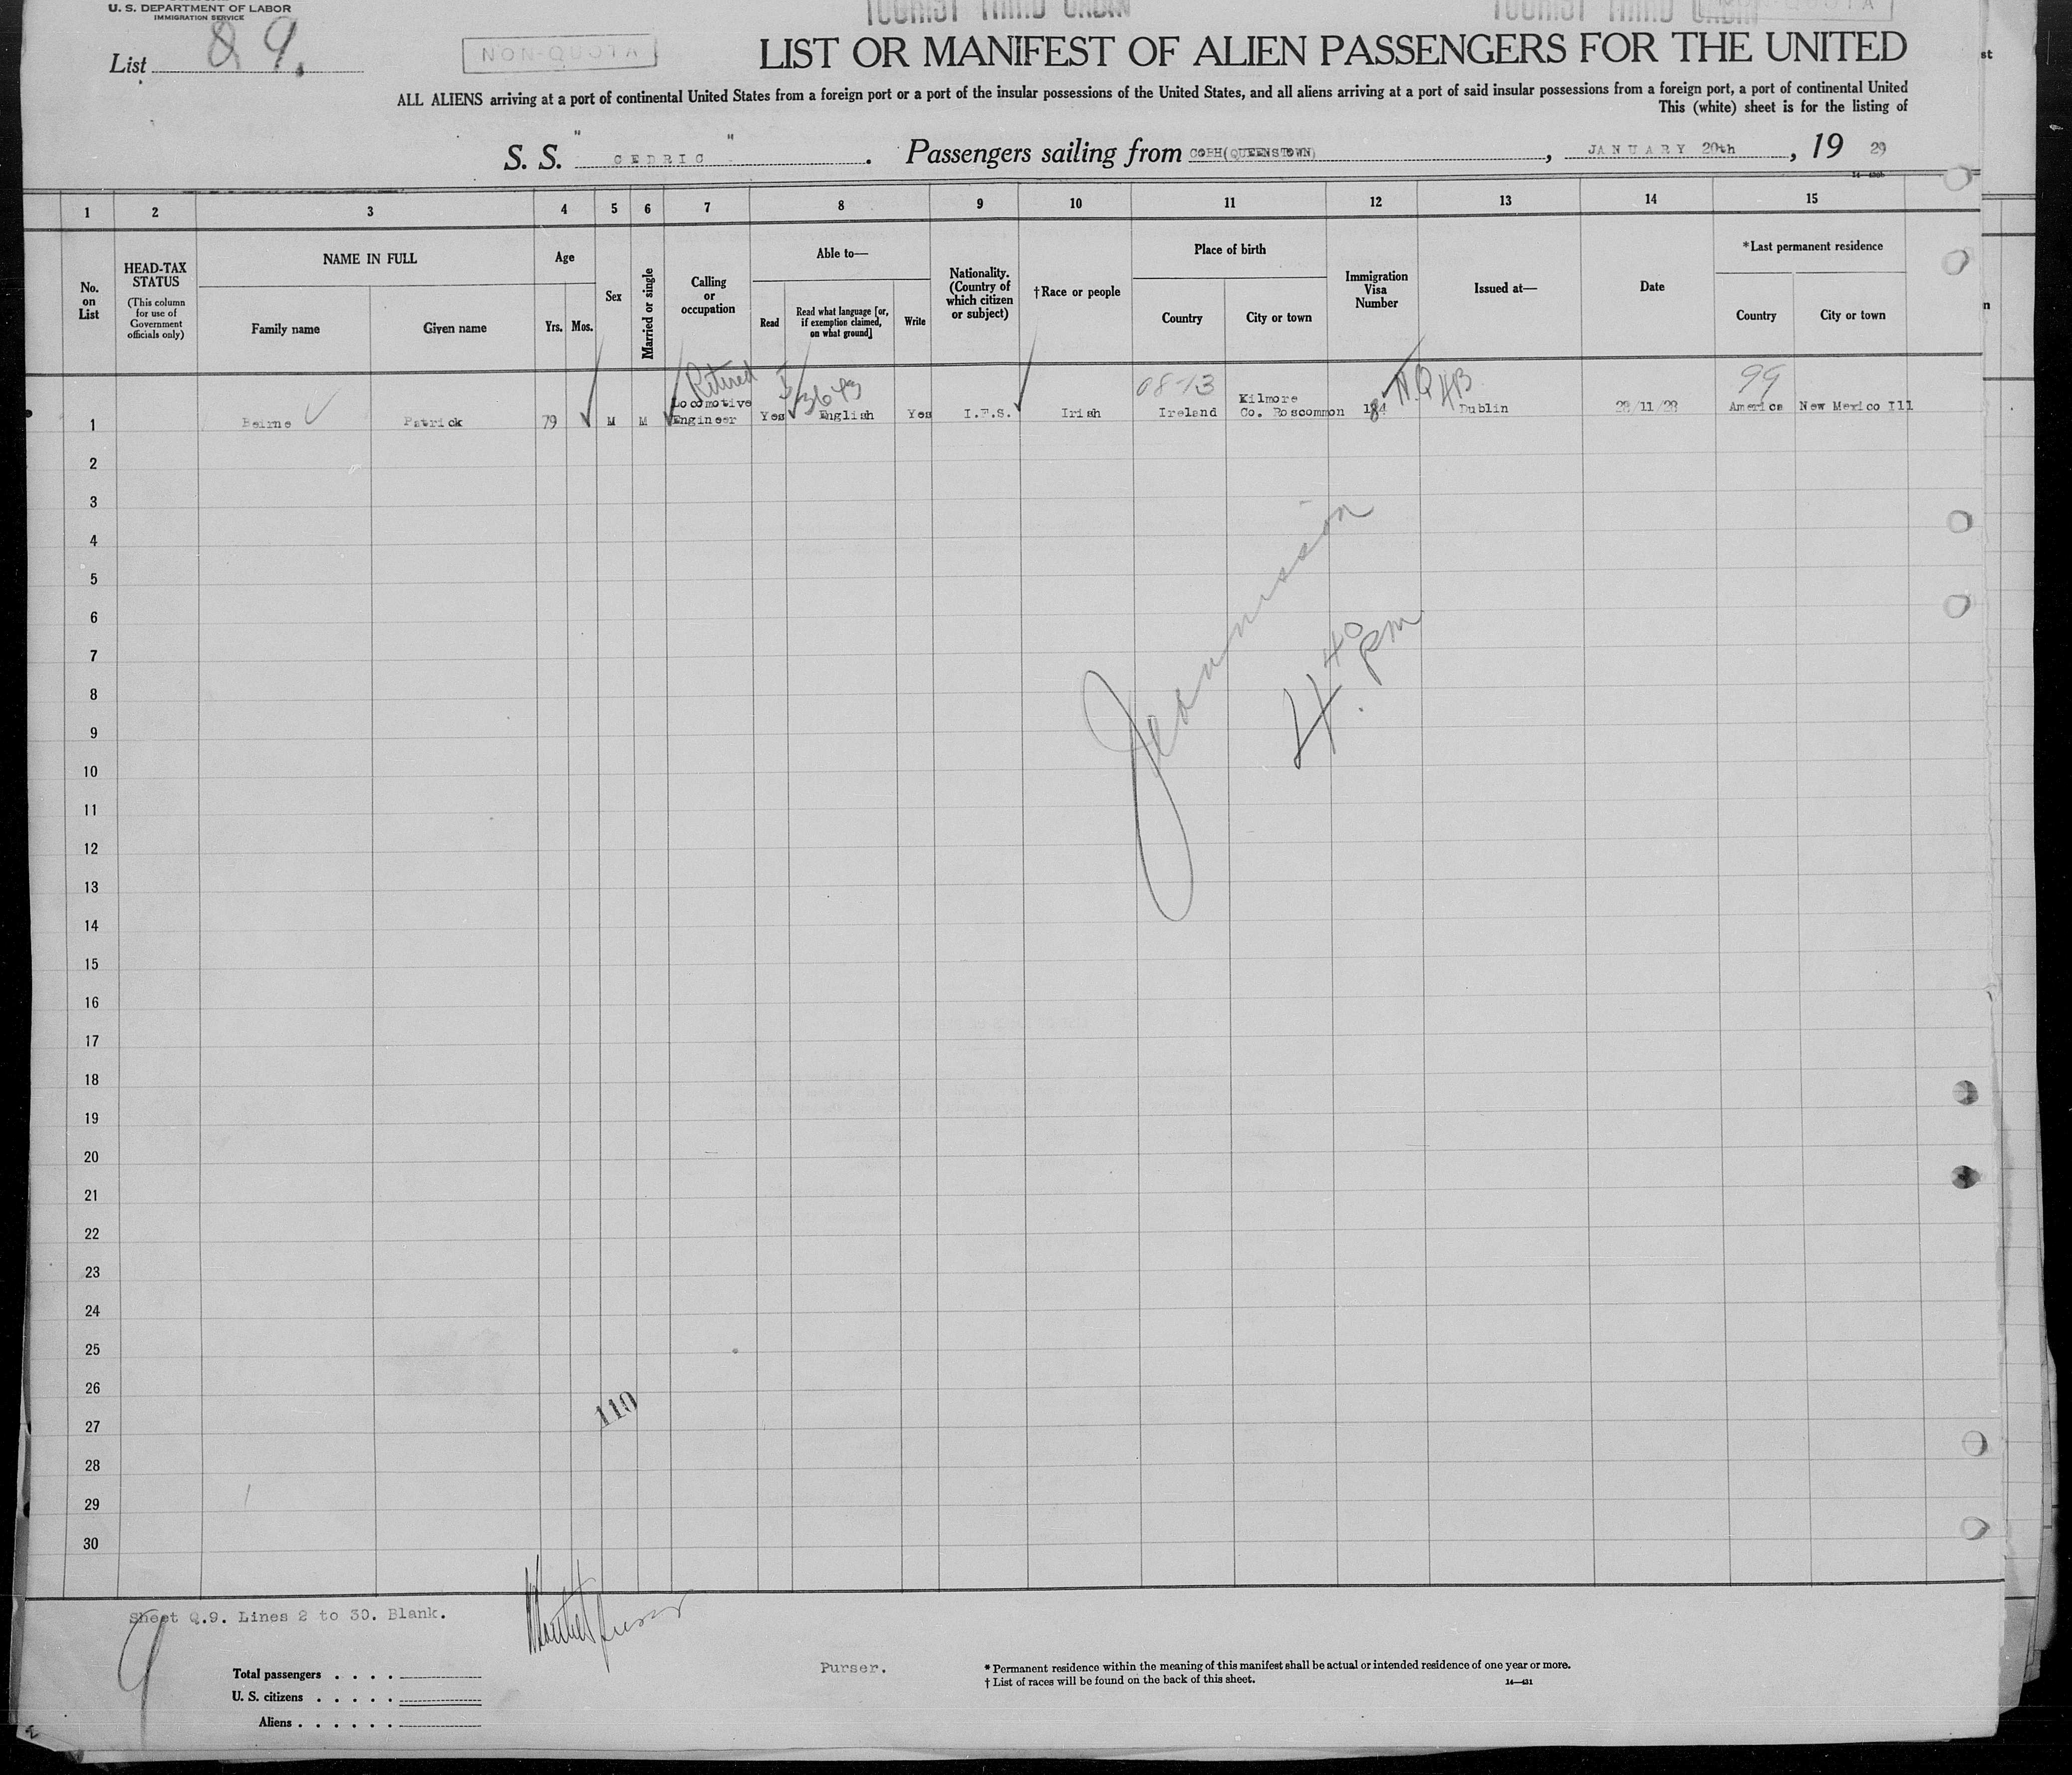 U. S. DEPARTMENT OF LABOR
IMMIGRATION SERVICE
TOURIST THIRD CABIN
TOURIST THIRD CABIN
List 89.
NON-QUOTA
LIST OR MANIFEST OF ALIEN PASSENGERS FOR THE UNITED
ALL ALIENS arriving at a port of continental United States from a foreign port or a port of the insular possessions of the United States, and all aliens arriving at a port of said insular possessions from a foreign port, a port of continental United
This (white) sheet is for the listing of
S. S. " CEDRIC " . Passengers sailing from COBH(QUEENSTOWN), JANUARY 20th, 19 29
1 2 3 4 5 6 7 8 9 10 11 12 13 14 15
No. on List
HEAD-TAX STATUS
(This column for use of Government officials only)
NAME IN FULL
Family name
Given name
Age
Yrs.
Mos.
Sex
Married or single
Calling or occupation
Able to—
Read
Read what language [or, if exemption claimed, on what ground]
Write
Nationality. (Country of which citizen or subject)
†Race or people
Place of birth
Country
City or town
Immigration Visa Number
Issued at—
Date
*Last permanent residence
Country
City or town
Retired
08-13
99
1 Beirne Patrick 79 M M Locomotive Engineer Yes English Yes I.F.S. Irish Ireland Kilmore Co. Roscommon 184 Dublin 28/11/28 America New Mexico Ill
2
3
4
5
6
7
8
9
10
11
12
13
14
15
16
17
18
19
20
21
22
23
24
25
26
27
28
29
30
4.40 pm
110
Sheet Q.9. Lines 2 to 30. Blank.
9
Purser.
Total passengers . . . .
U. S. citizens . . . . .
Aliens . . . . . .
* Permanent residence within the meaning of this manifest shall be actual or intended residence of one year or more.
† List of races will be found on the back of this sheet.
14—431